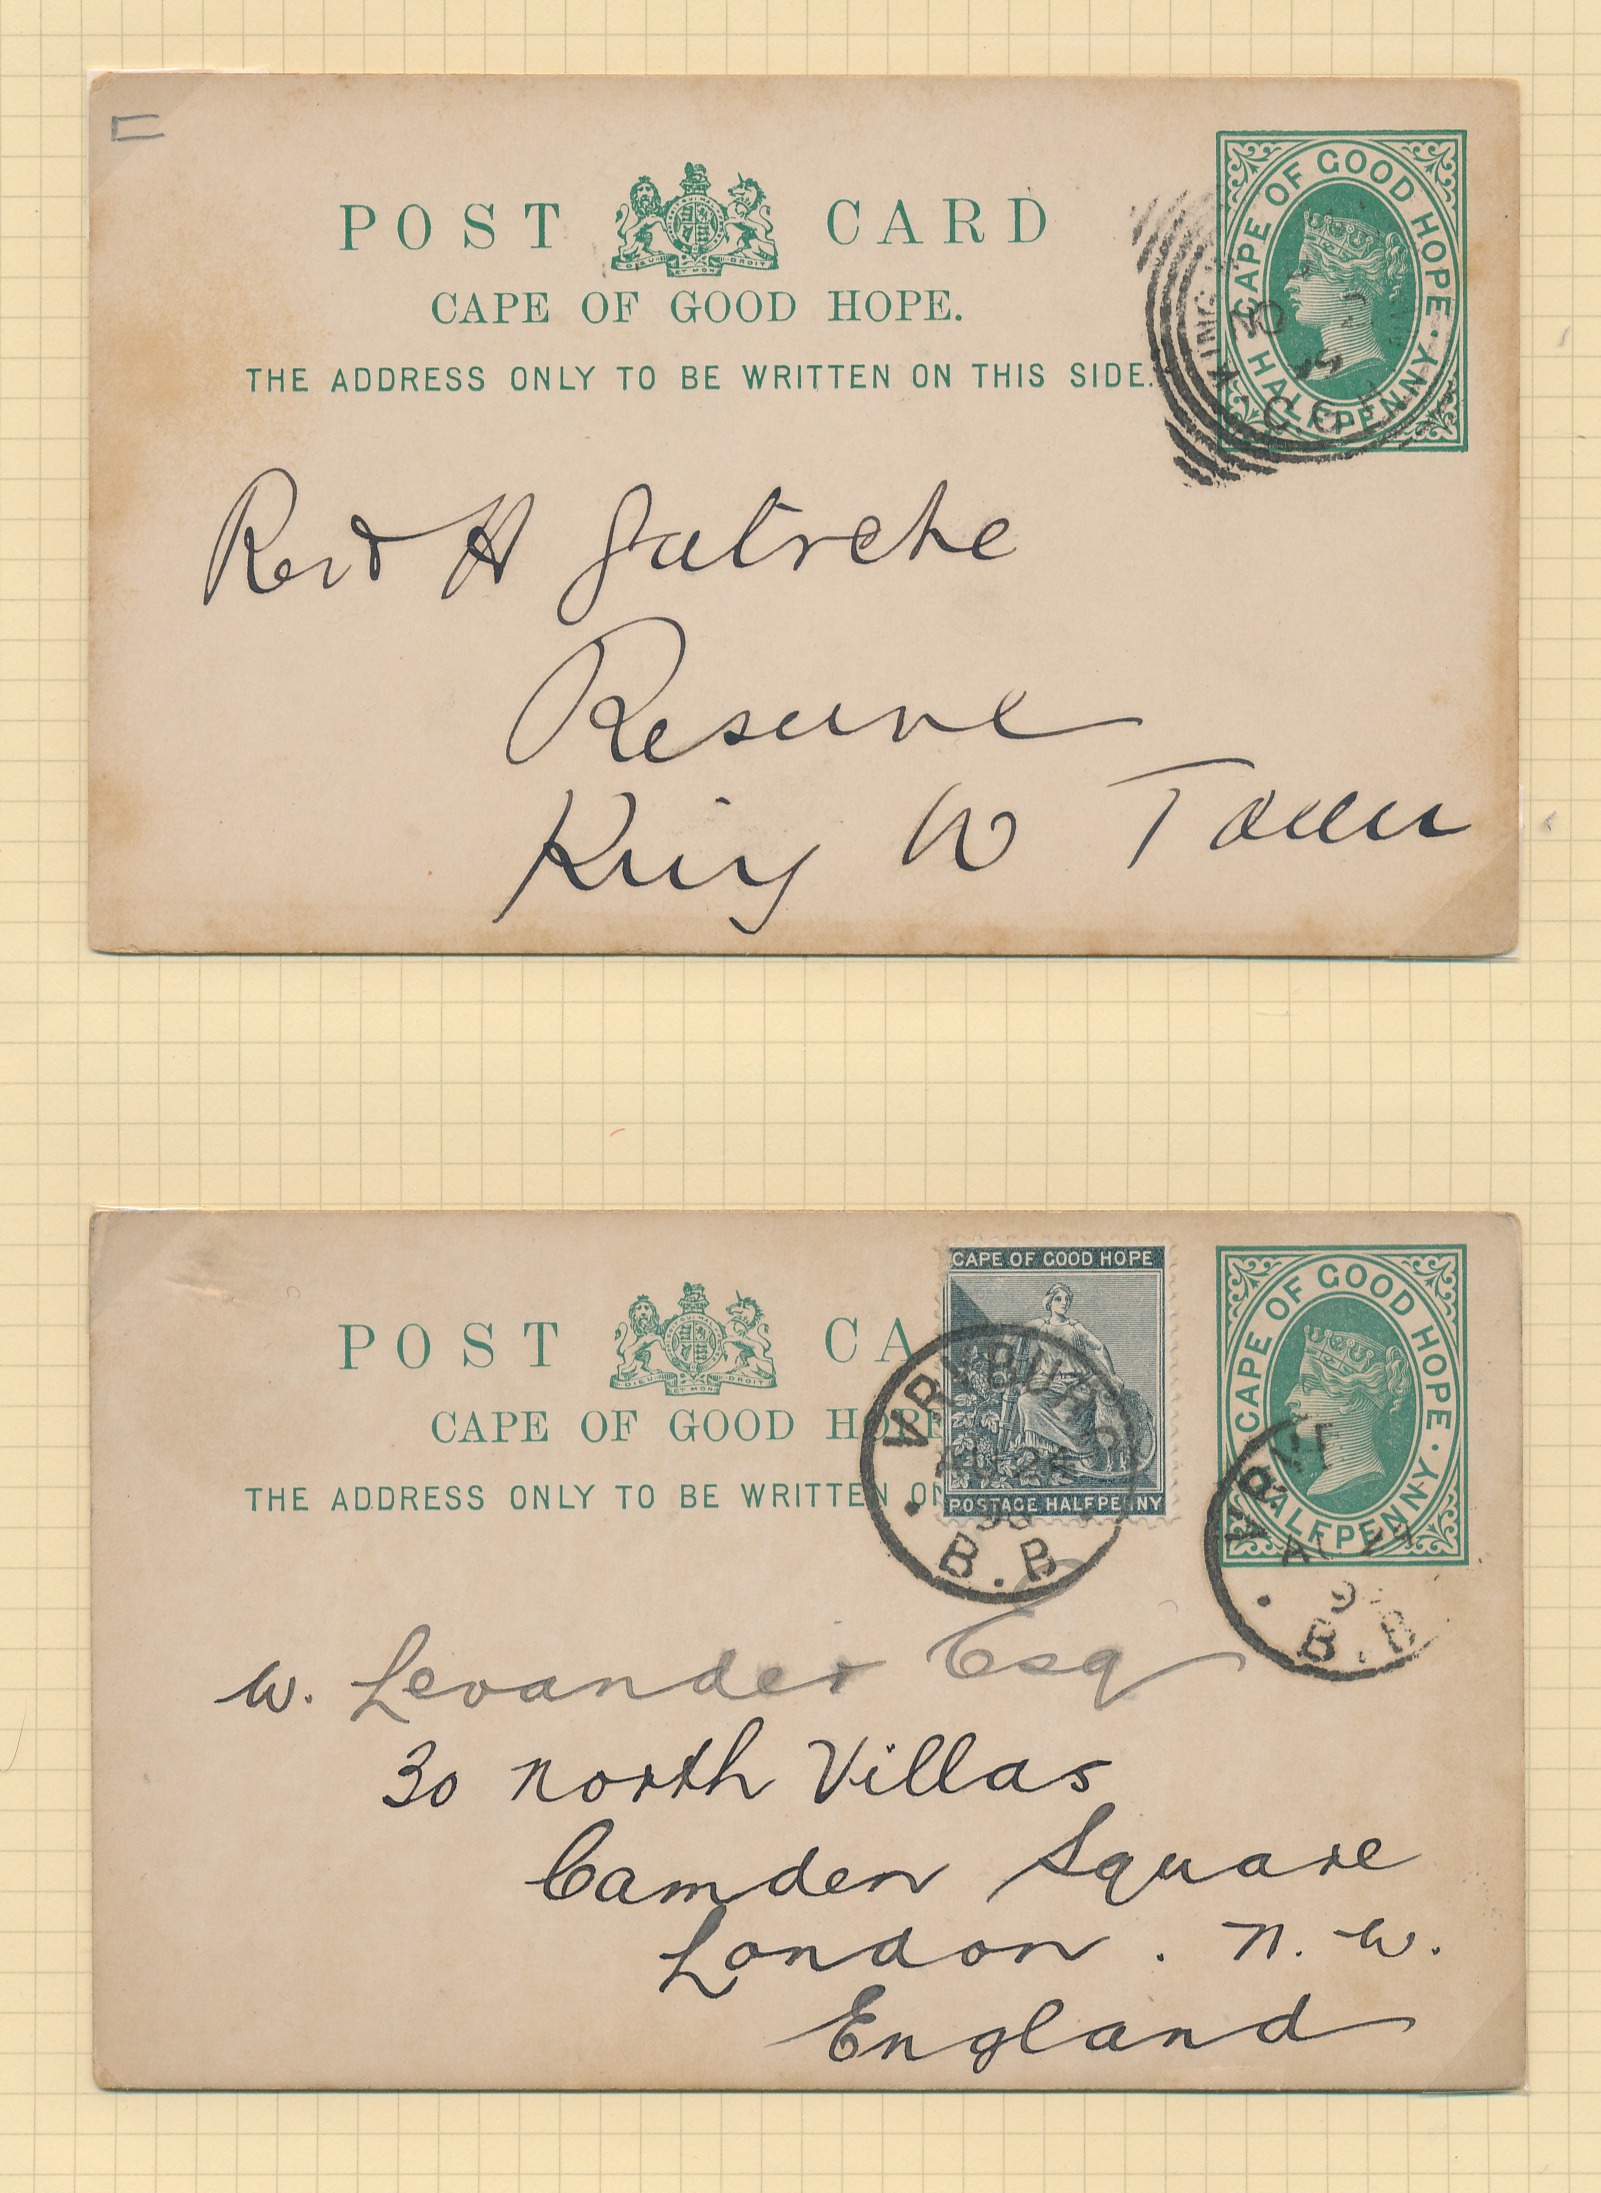 POST CARD
CAPE OF GOOD HOPE.
THE ADDRESS ONLY TO BE WRITTEN ON THIS SIDE.
CAPE OF GOOD HOPE.
HALFPENNY
KING
C.G.H
Revd H
Reserve
King W Town
POST CA
CAPE OF GOOD HOPE
THE ADDRESS ONLY TO BE WRITTEN ON
CAPE OF GOOD HOPE
POSTAGE HALFPENNY
VRYBURG
AU 24
B.B
CAPE OF GOOD HOPE.
HALFPENNY
AU 24
B.B
W. Levander Esq
30 North Villas
Camden Square
London. N. W.
England